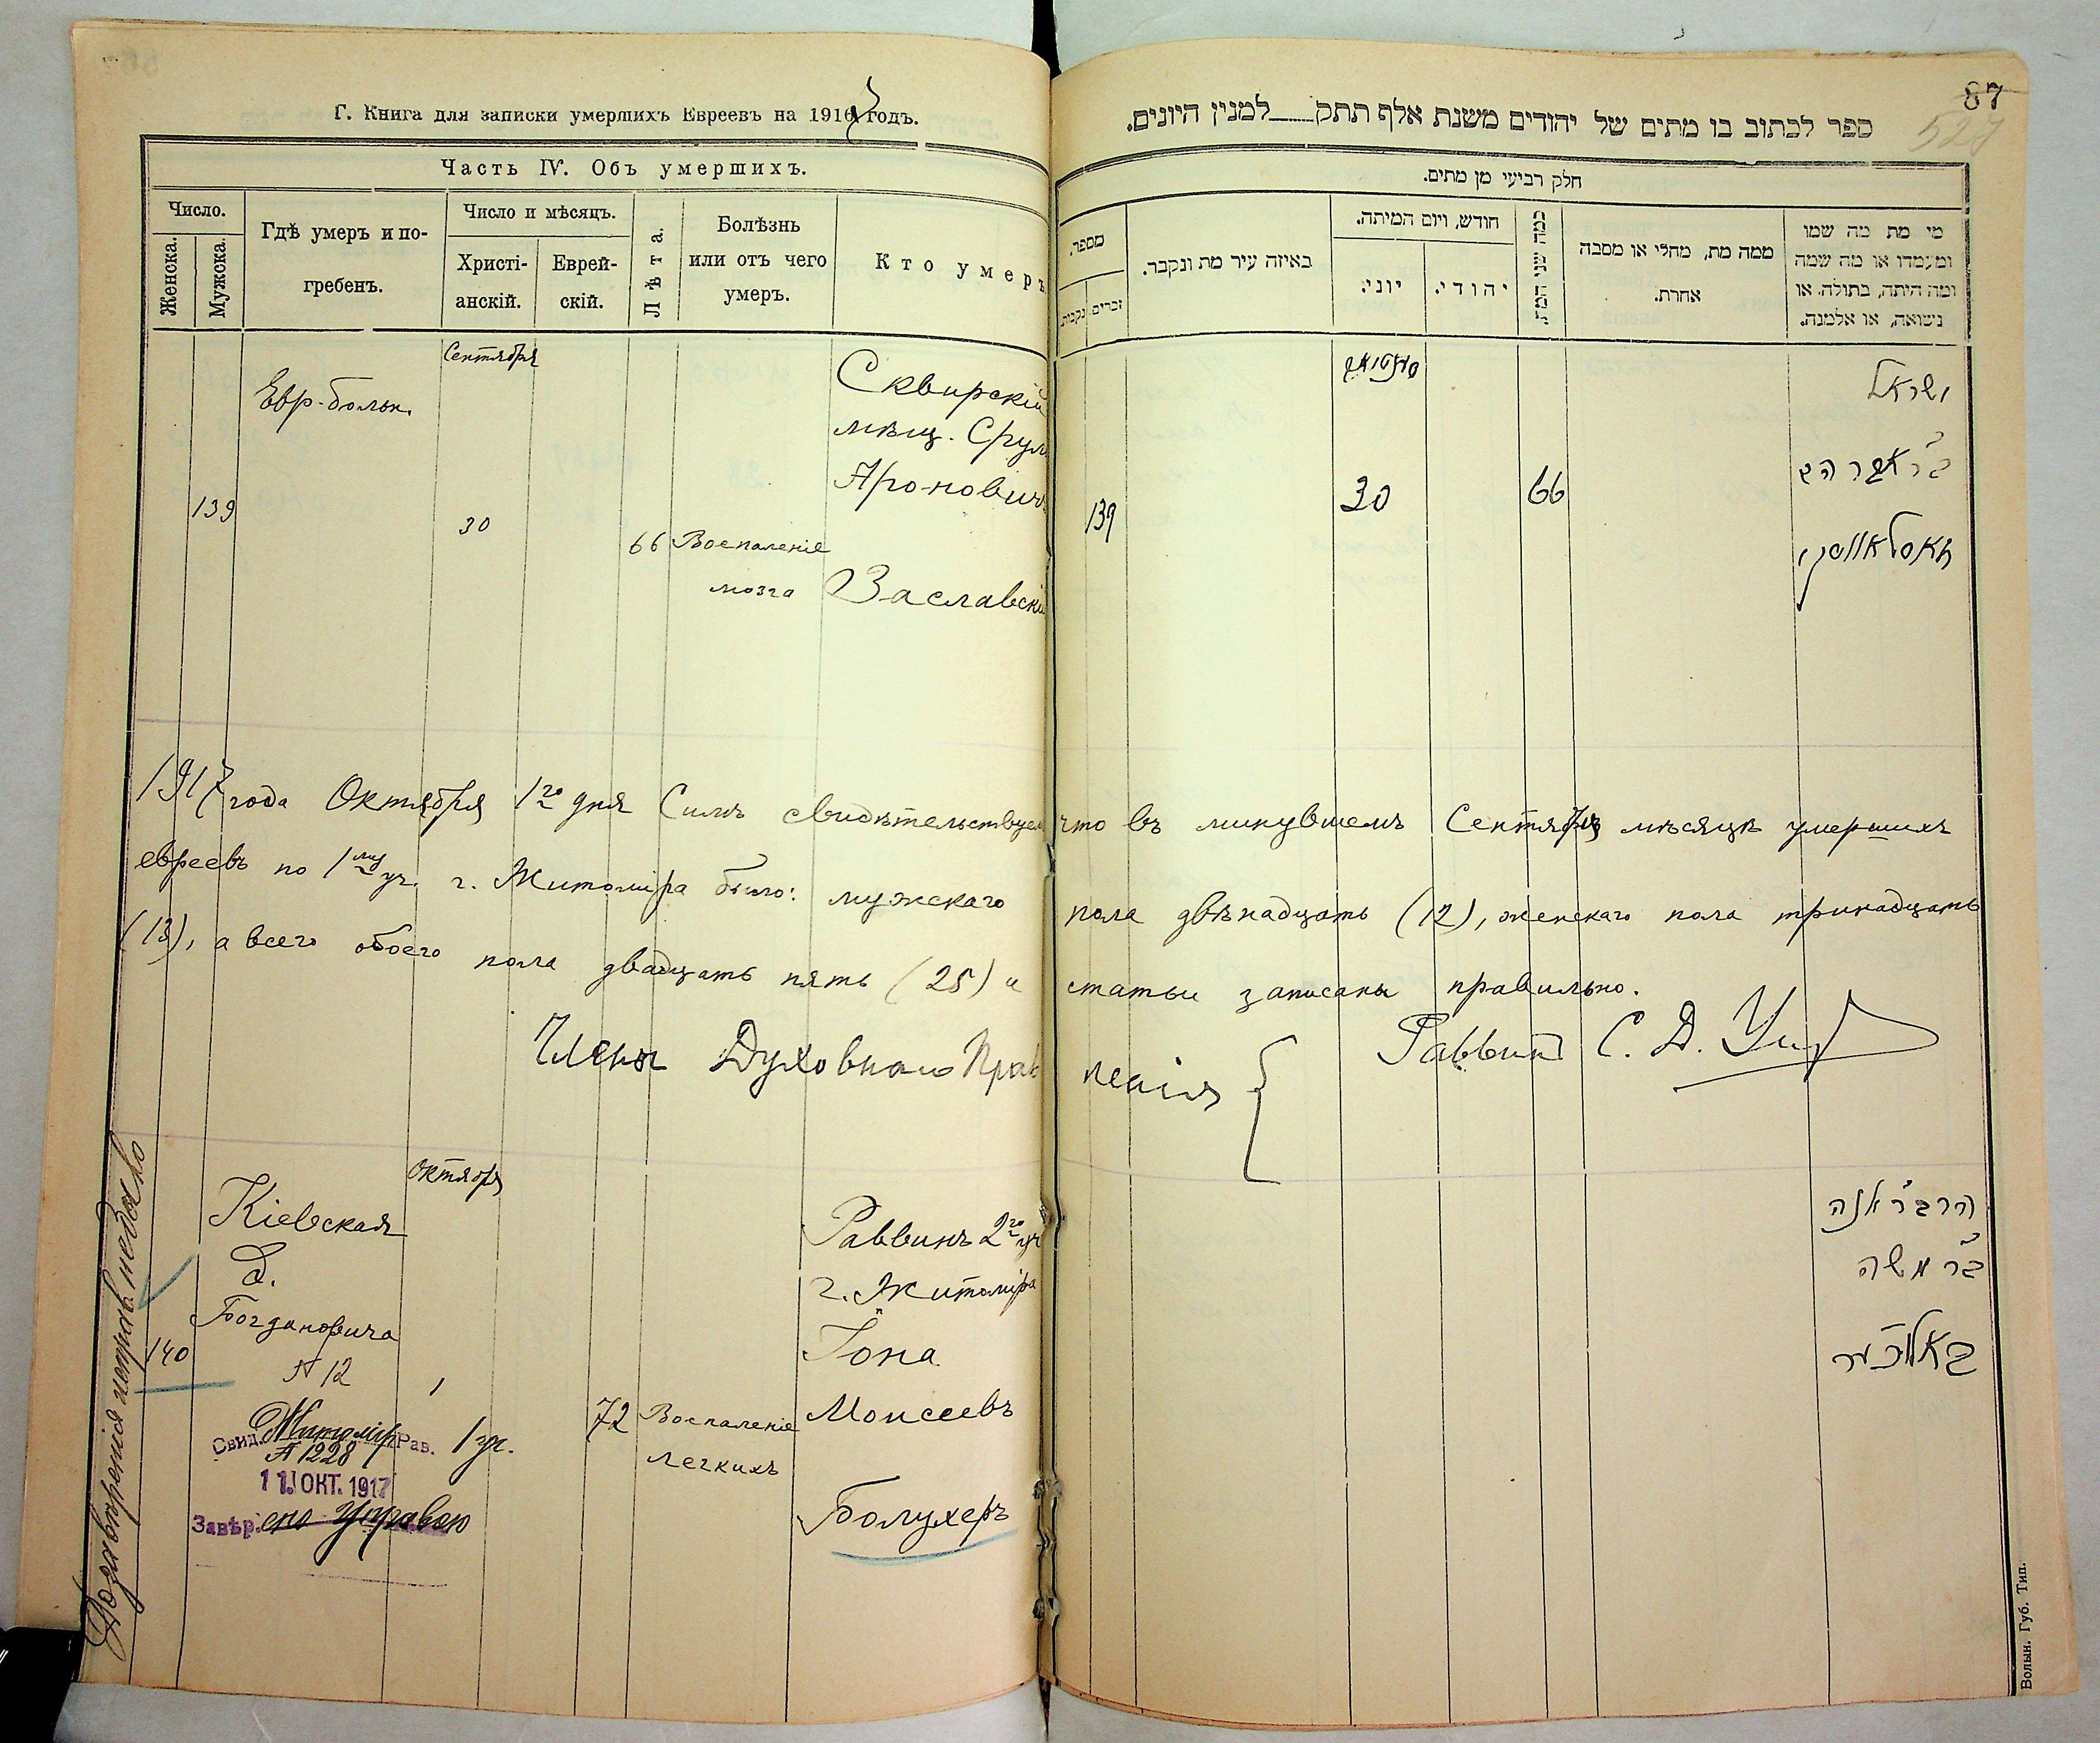 Г. Книга для записки умершихъ Евреевъ на 1917 годъ.
Часть IV. Объ умершихъ.
Число.
Женска.
Мужска.
Гдѣ умеръ и по-
гребенъ.
Число и мѣсяцъ.
Христі-
анскій.
Еврей-
скій.
Лѣта.
Болѣзнь
или отъ чего
умеръ.
Кто умеръ
Сентября
Евр-больн.
139
30
66
Воспаленіе
мозга
Сквирскій
мѣщ. Срул
Аронович
Заславскій
1917 года Октября 1го дня Симъ свидѣтельствуем что въ минувшемъ Сентябрѣ мѣсяцѣ умершихъ
евреевъ по 1му уч. г. Житоміра было: мужскаго пола двѣнадцать (12), женскаго пола тринадцать
(13), а всего обоего пола двадцать пять (25) и статьи записаны правильно.
Раввинъ С. Д.
Члены Духовнаго Правленія
Октября
Кіевская
д.
Богдановича
№ 12
140
1
1 уч.
72
Воспаленіе
легкихъ
Раввинъ 2го уч
г. Житоміра
Іона
Моисеевъ
Болухеръ
Свид. Житомір Рав.
№ 1228
11 ОКТ. 1917
Завѣр. ено Управою
87
527
ספר לכתוב בו מתים של יהודים משנת אלף תתק למנין היונים.
חלק רביעי מן מתים.
מספר.
זכרים
נקבות
באיזה עיר מת ונקבר.
חודש, ויום המיתה.
יוני.
יהודי.
כמה שני המת
ממה מת, מחלי או מסבה
אחרת.
מי מת מה שמו
ומעמדו או מה שמה
ומה היתה, בתולה, או
נשואה, או אלמנה.
139
30
66
ישראל
ב״ר אהרן
זאסלאווסקי
ב״ר משה
Волын. Губ. Тип.